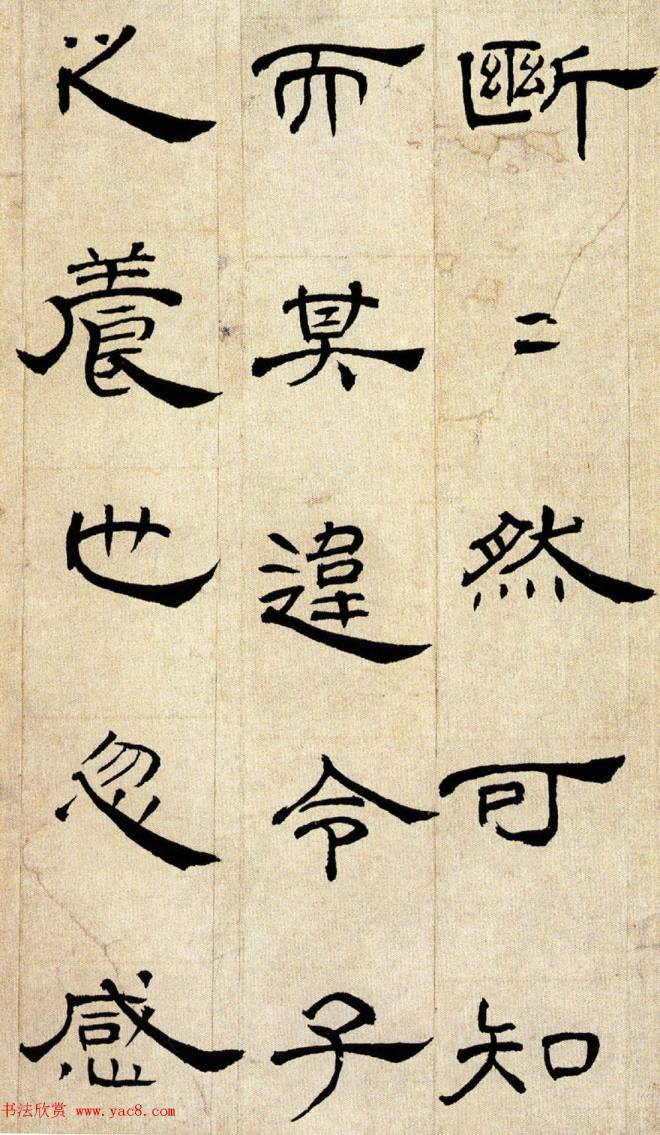 斷〻然可知
而其違令子
之養也忽感
书法欣赏 www.yac8.com